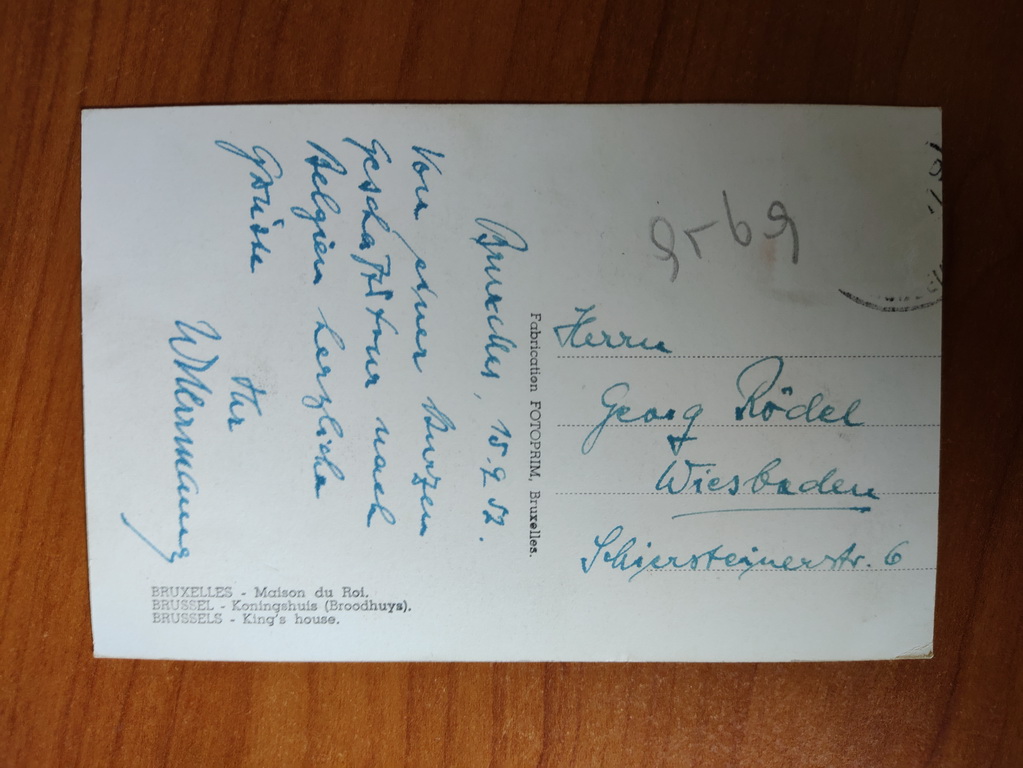 Bruxelles, 15.9.52.
Von einer kurzen
Geschäftstour nach
Belgien herzliche
Grüsse
Ihr
Fabrication FOTOPRIM, Bruxelles.
Herrn
Georg Rödel
Wiesbaden
Schiersteinerstr. 6
BRUXELLES - Maison du Roi.
BRUSSEL - Koningshuis (Broodhuys).
BRUSSELS - King's house.